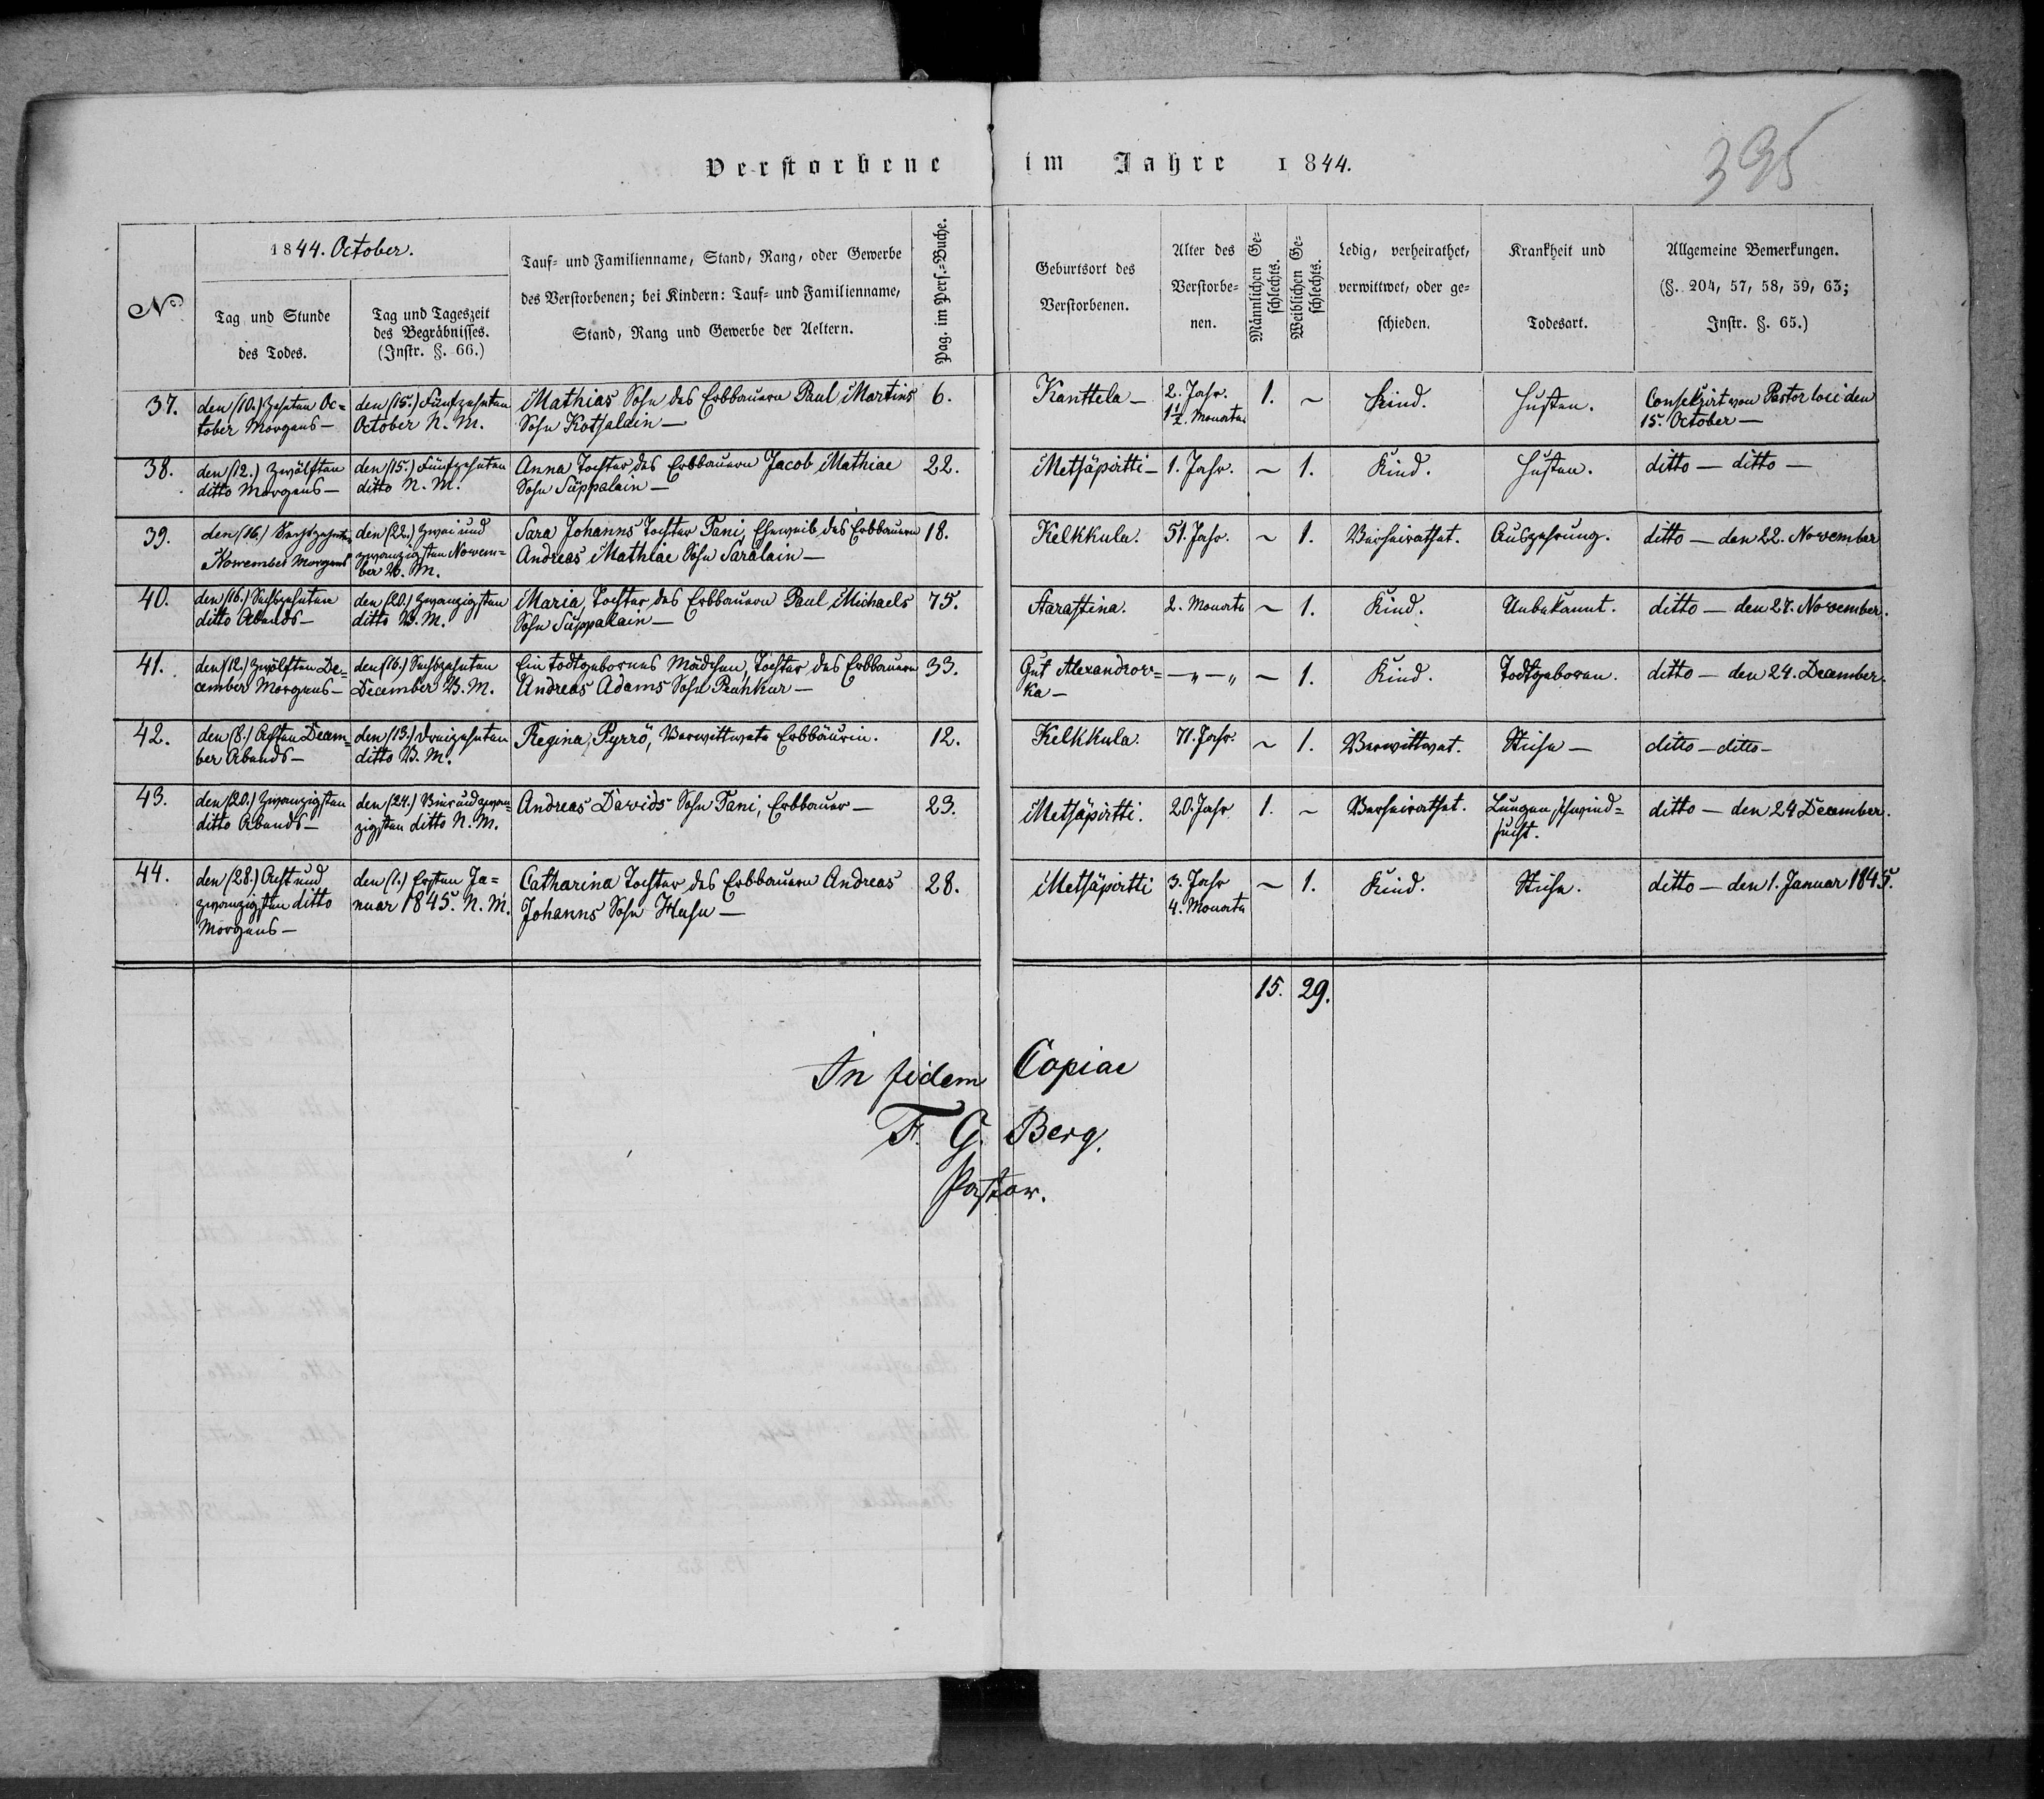 Verstorbene im Jahre 1844.
395
No
1844. October.
Tag und Stunde
des Todes.
Tag und Tageszeit
des Begräbnisses.
(Instr. §. 66.)
Tauf- und Familienname, Stand, Rang, oder Gewerbe
des Verstorbenen; bei Kindern: Tauf- und Familienname,
Stand, Rang und Gewerbe der Aeltern.
Pag. im Pers.-Buche.
Geburtsort des
Verstorbenen.
Alter des
Verstorbe-
nen.
Männlichen Ge-
schlechts.
Weiblichen Ge-
schlechts.
Ledig, verheirathet,
verwittwet, oder ge-
schieden.
Krankheit und
Todesart.
Allgemeine Bemerkungen.
(§. 204, 57, 58, 59, 63;
Instr. §. 65.)
37.
den (10.) Zehnten Oc=
tober Morgens —
den (15.) Fünfzehnten
October N. M.
Mathias Sohn des Erbbauern Paul Martins
Sohn Kotsalain —
6.
Kanttela —
2. Jahr.
1½. Monate
1.
~
Kind.
Husten.
Consekrirt von Pastor loci den
15. October —
38.
den (12.) Zwölften
ditto Morgens —
den (15.) Fünfzehnten
ditto N. M.
Anna Tochter des Erbbauern Jacob Mathiae
Sohn Suppalain —
22.
Metsäpirtti —
1. Jahr.
~
1.
Kind.
Husten.
ditto — ditto —
39.
den (16.) Sechszehnten
November Morgens
den (22.) Zwei und
zwanzigsten Novem=
ber V. M.
Sara Johanns Tochter Tani, Eheweib des Erbbauern
Andreas Mathiae Sohn Saralain —
18.
Kelkkula.
51. Jahr.
~
1.
Verheirathet.
Auszehrung.
ditto — den 22. November
40.
den (16.) Sechszehnten
ditto Abends —
den (20.) Zwanzigsten
ditto V. M.
Maria, Tochter des Erbbauern Paul Michaels
Sohn Suppalain —
75.
Aarastina.
2. Monate
~
1.
Kind.
Unbekannt.
ditto — den 27. November.
41.
den (12.) Zwölften De=
cember Morgens —
den (16.) Sechszehnten
December V. M.
Ein todtgebornes Mädchen, Tochter des Erbbauern
Andreas Adams Sohn Puhkur —
33.
Gut Alexandrow=
ka —
— „ — „
~
1.
Kind.
Todtgeboren.
ditto — den 24. December.
42.
den (8.) Achten Decem=
ber Abends —
den (13.) Dreizehnten
ditto V. M.
Regina, Pyrrö, Verwittwete Erbbäurin.
12.
Kelkkula.
71. Jahr.
~
1.
Verwittwet.
Stiche —
ditto — ditto —
43.
den (20.) Zwanzigsten
ditto Abends —
den (24.) Vier und zwan=
zigsten ditto N. M.
Andreas Davids Sohn Tani, Erbbauer —
23.
Metsäpirtti.
20. Jahr
1.
~
Verheirathet.
Lungenschwind=
sucht.
ditto — den 24 December.
44.
den (28.) Acht und
zwanzigsten ditto
Morgens —
den (1.) Ersten Ja=
nuar 1845. N. M.
Catharina Tochter des Erbbauern Andreas
Johanns Sohn Husu —
28.
Metsäpirtti
3. Jahr
4. Monate
~
1.
Kind.
Stiche.
ditto — den 1. Januar 1845.
15. 29.
In fidem Copiae
F. G. Berg.
Pastor.